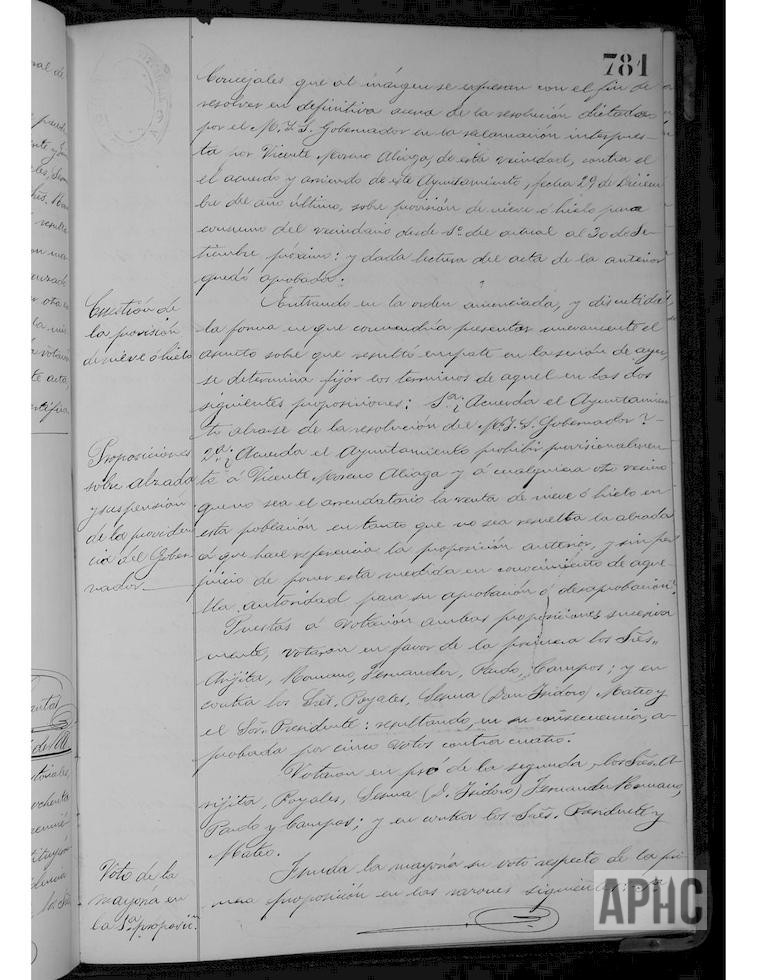 781
Concejales que al márgen se expresan con el fin de
resolver en definitiva acerca de la resolución dictada
por el M. I. S. Gobernador en la reclamación interpues-
ta por Vicente Moreno Aliaga, de esta vecindad, contra el
el acuerdo y arriendo de este Ayuntamiento, fecha 29 de Diciem-
bre del año último, sobre provisión de nieve ó hielo para
consumo del vecindario desde 1º del actual al 30 de Se-
tiembre próximo: y dada lectura del acta de la anterior
quedó aprobada.
Cuestión de
la provisión
de nieve ó hielo
Entrando en la orden anunciada, y discutida
la forma en que convendría presentar nuevamente el
asunto sobre que resultó empate en la sesión de ayer,
se determina fijar los terminos de aquel en las dos
siguientes proposiciones: 1ª ¿Acuerda el Ayuntamien-
to alzarse de la resolución del M. I. S. Gobernador?-
Proposiciones
sobre alzada
y suspensión
de la providen-
cia del Gober-
nador
2ª ¿Acuerda el Ayuntamiento prohibir provisionalmen-
te á Vicente Moreno Aliaga y á cualquiera otro vecino
que no sea el arrendatario la venta de nieve ó hielo en
esta población en tanto que no sea resuelta la alzada
á que hace referencia la proposición anterior, y sin per-
juicio de poner esta medida en conocimiento de aque-
lla autoridad para su aprobación ó desaprobación?
Puestas á votación ambas proposiciones sucesiva-
mente, votaron en favor de la primera los Sres.
Romano, Fernandez, Pardo, Campos; y en
contra los Sres. Royales, Lerma (Don Isidoro) Mateo y
el Sor. Presidente: resultando, en su consecuencia, a-
probada por cinco votos contra cuatro.
Votaron en pró de la segunda, los Sres. A-
Royales, Lerma (D. Isidoro) Fernandez, Romano,
Pardo y Campos; y en contra los Sres. Presidente y
Mateo.
Voto de la
mayoría en
la 1ª proposicn.
Funda la mayoría su voto respecto de la pri-
mera proposición en las razones siguientes: 1ª
APHC